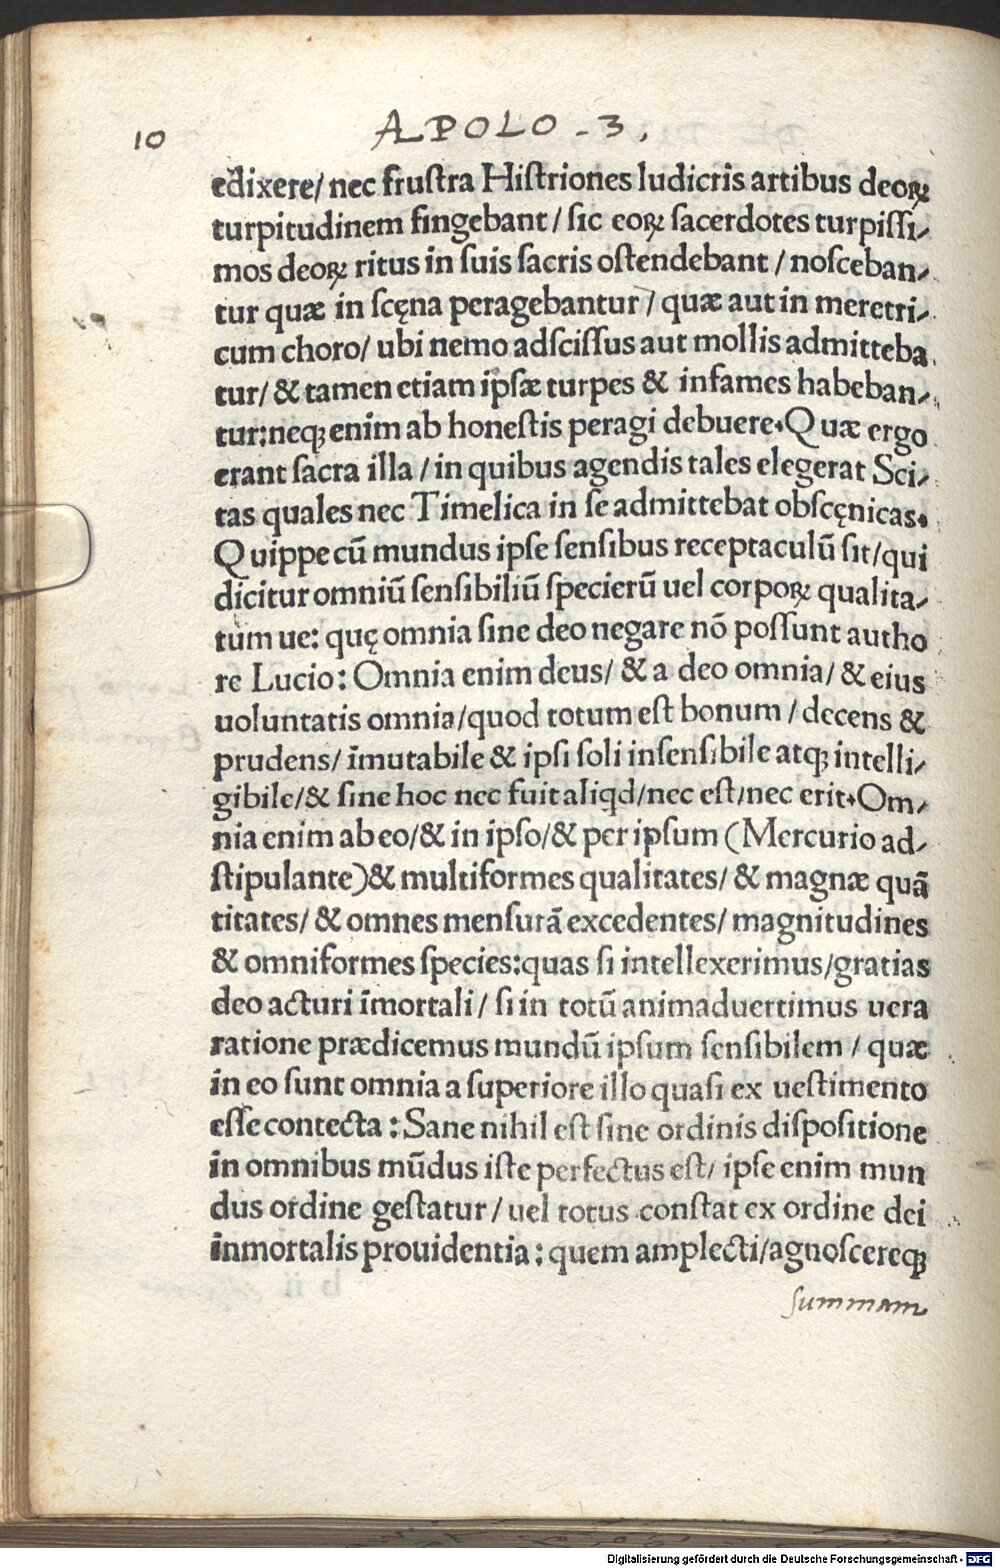 10
APOLO - 3.
edixere/ nec fruſtra Hiſtriones ludicris artibus deoꝝ
turpitudinem fingebant / ſic eoꝝ ſacerdotes turpiſſi⸗
mos deoꝝ ritus in ſuis ſacris oſtendebant / noſceban⸗
tur quæ in ſcęna peragebantur / quæ aut in meretri⸗
cum choro/ ubi nemo adſciſſus aut mollis admitteba
tur/ & tamen etiam ipſæ turpes & infames habeban⸗
tur:neqꝫ enim ab honeſtis peragi debuere. Quæ ergo
erant ſacra illa / in quibus agendis tales elegerat Sci⸗
tas quales nec Timelica in ſe admittebat obſcęnicas.
Quippe cū mundus ipſe ſenſibus receptaculū ſit/qui
dicitur omniū ſenſibiliū ſpecierū uel corpoꝝ qualita⸗
tum ue: quę omnia ſine deo negare nō poſſunt autho
re Lucio: Omnia enim deus/ & a deo omnia/ & eius
uoluntatis omnia/quod totum eſt bonum / decens &
prudens/ īmutabile & ipſi ſoli inſenſibile atqꝫ intelli⸗
gibile/& ſine hoc nec fuit aliqd/nec eſt/nec erit. Om⸗
nia enim ab eo/& in ipſo/& per ipſum (Mercurio ad⸗
ſtipulante)& multiformes qualitates/ & magnæ quā
titates/ & omnes menſurā excedentes/ magnitudines
& omniformes ſpecies:quas ſi intellexerimus/gratias
deo acturi īmortali / ſi in totū animaduertimus uera
ratione prædicemus mundū ipſum ſenſibilem / quæ
in eo ſunt omnia a ſuperiore illo quaſi ex ueſtimento
eſſe contecta : Sane nihil eſt ſine ordinis diſpoſitione
in omnibus mūdus iſte perfectus eſt/ ipſe enim mun
dus ordine geſtatur / uel totus conſtat ex ordine dei
inmortalis prouidentia : quem amplecti/agnoſcereqꝫ
ſummam
Digitalisierung gefördert durch die Deutsche Forschungsgemeinschaft - DFG